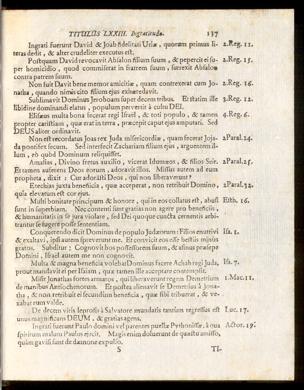 TITULUS LXXIII. Ingratitudo. 137
Ingrati fuerunt David & Joab fidelitati Uriæ, quorum primus li- 2.Reg. 11.
teras dedit, & alter crudeliter executus est.
Postquam David revocavit Absalon filium suum, & pepercit ei su- 2.Reg. 15.
per homicidio, quod commiserat in fratrem suum, surrexit Absalon
contra patrem suum.
Non fuit David bene memor amicitiæ, quam contrexerat cum Jo- 2.Reg. 16.
natha, quando nimis cito filium ejus exhæredavit.
Sublimavit Dominus Jeroboam super decem tribus. Et statim ille 3.Reg. 12.
libidine dominandi elatus, populum pervertit à cultu DEI.
Elisæus multa bona fecerat regi Israël, & toti populo, & tamen 4.Reg. 6.
propter caritatem, quæ erat in terra, præcepit caput ejus amputari. Sed
DEUS aliter ordinavit.
Non est recordatus Joas rex Juda misericordiæ, quam fecerat Joja- 2Paral.24.
da pontifex secum. Sed interfecit Zachariam filium ejus, arguentem il-
lum, eò quòd Dominum reliquisset.
Amasias, Divino fretus auxilio, vicerat Idumæos, & filios Seir. 2Paral.25.
Et tamen auferens Deos eorum, adoravit illos. Missus autem ad eum
propheta, dixit: Cur adorasti Deos, qui non liberaverunt?
Ezechias juxta beneficia, quæ acceperat, non retribuit Domino, 2Paral.32.
quia elevatum est cor ejus.
Multi bonitate principum & honore, qui in eos collatus est, abusi Esth. 16.
sunt in superbiam. Nec contenti sunt gratias non agere pro beneficiis,
& humanitatis in se jura violare, sed Dei quoque cuncta cernentis arbi-
trantur se fugere posse sententiam.
Conquerendo dicit Dominus de populo Judæorum: Filios enutrivi Isa. 1.
& exaltavi, ipsi autem spreverunt me. Et convicit eos esse bestiis minùs
gratos. Subditur: Cognovit bos possessorem suum, & asinus præsepe
Domini, Israël autem me non cognovit.
Multa & magna beneficia volebat Dominus facere Achab regi Juda, Isa. 7.
prout mandavit ei per Isaiam, qua tamen ille acceptare contempsit.
Misit Jonathas fortes armatos, qui liberaverunt regem Demetrium 1.Mac. 11.
de manibus Antiochenorum. Et postea alienavit se Demetrius à Jona-
tha, & non retribuit ei secundùm beneficia, quæ sibi tribuerat, & ve-
xabat eum valde.
De decem viris leprosis à Salvatore mundatis tantùm regressus est Luc. 17.
unus magnificans DEUM, & gratias agens.
Ingrati fuerunt Paulo domini vel parentes puellæ Pythonissæ, à qua Actor. 19.
spiritum malum Paulus ejecit. Magis enim doluerunt de quæstu amisso,
quàm gavisi sunt de damone expulso.
S TI-